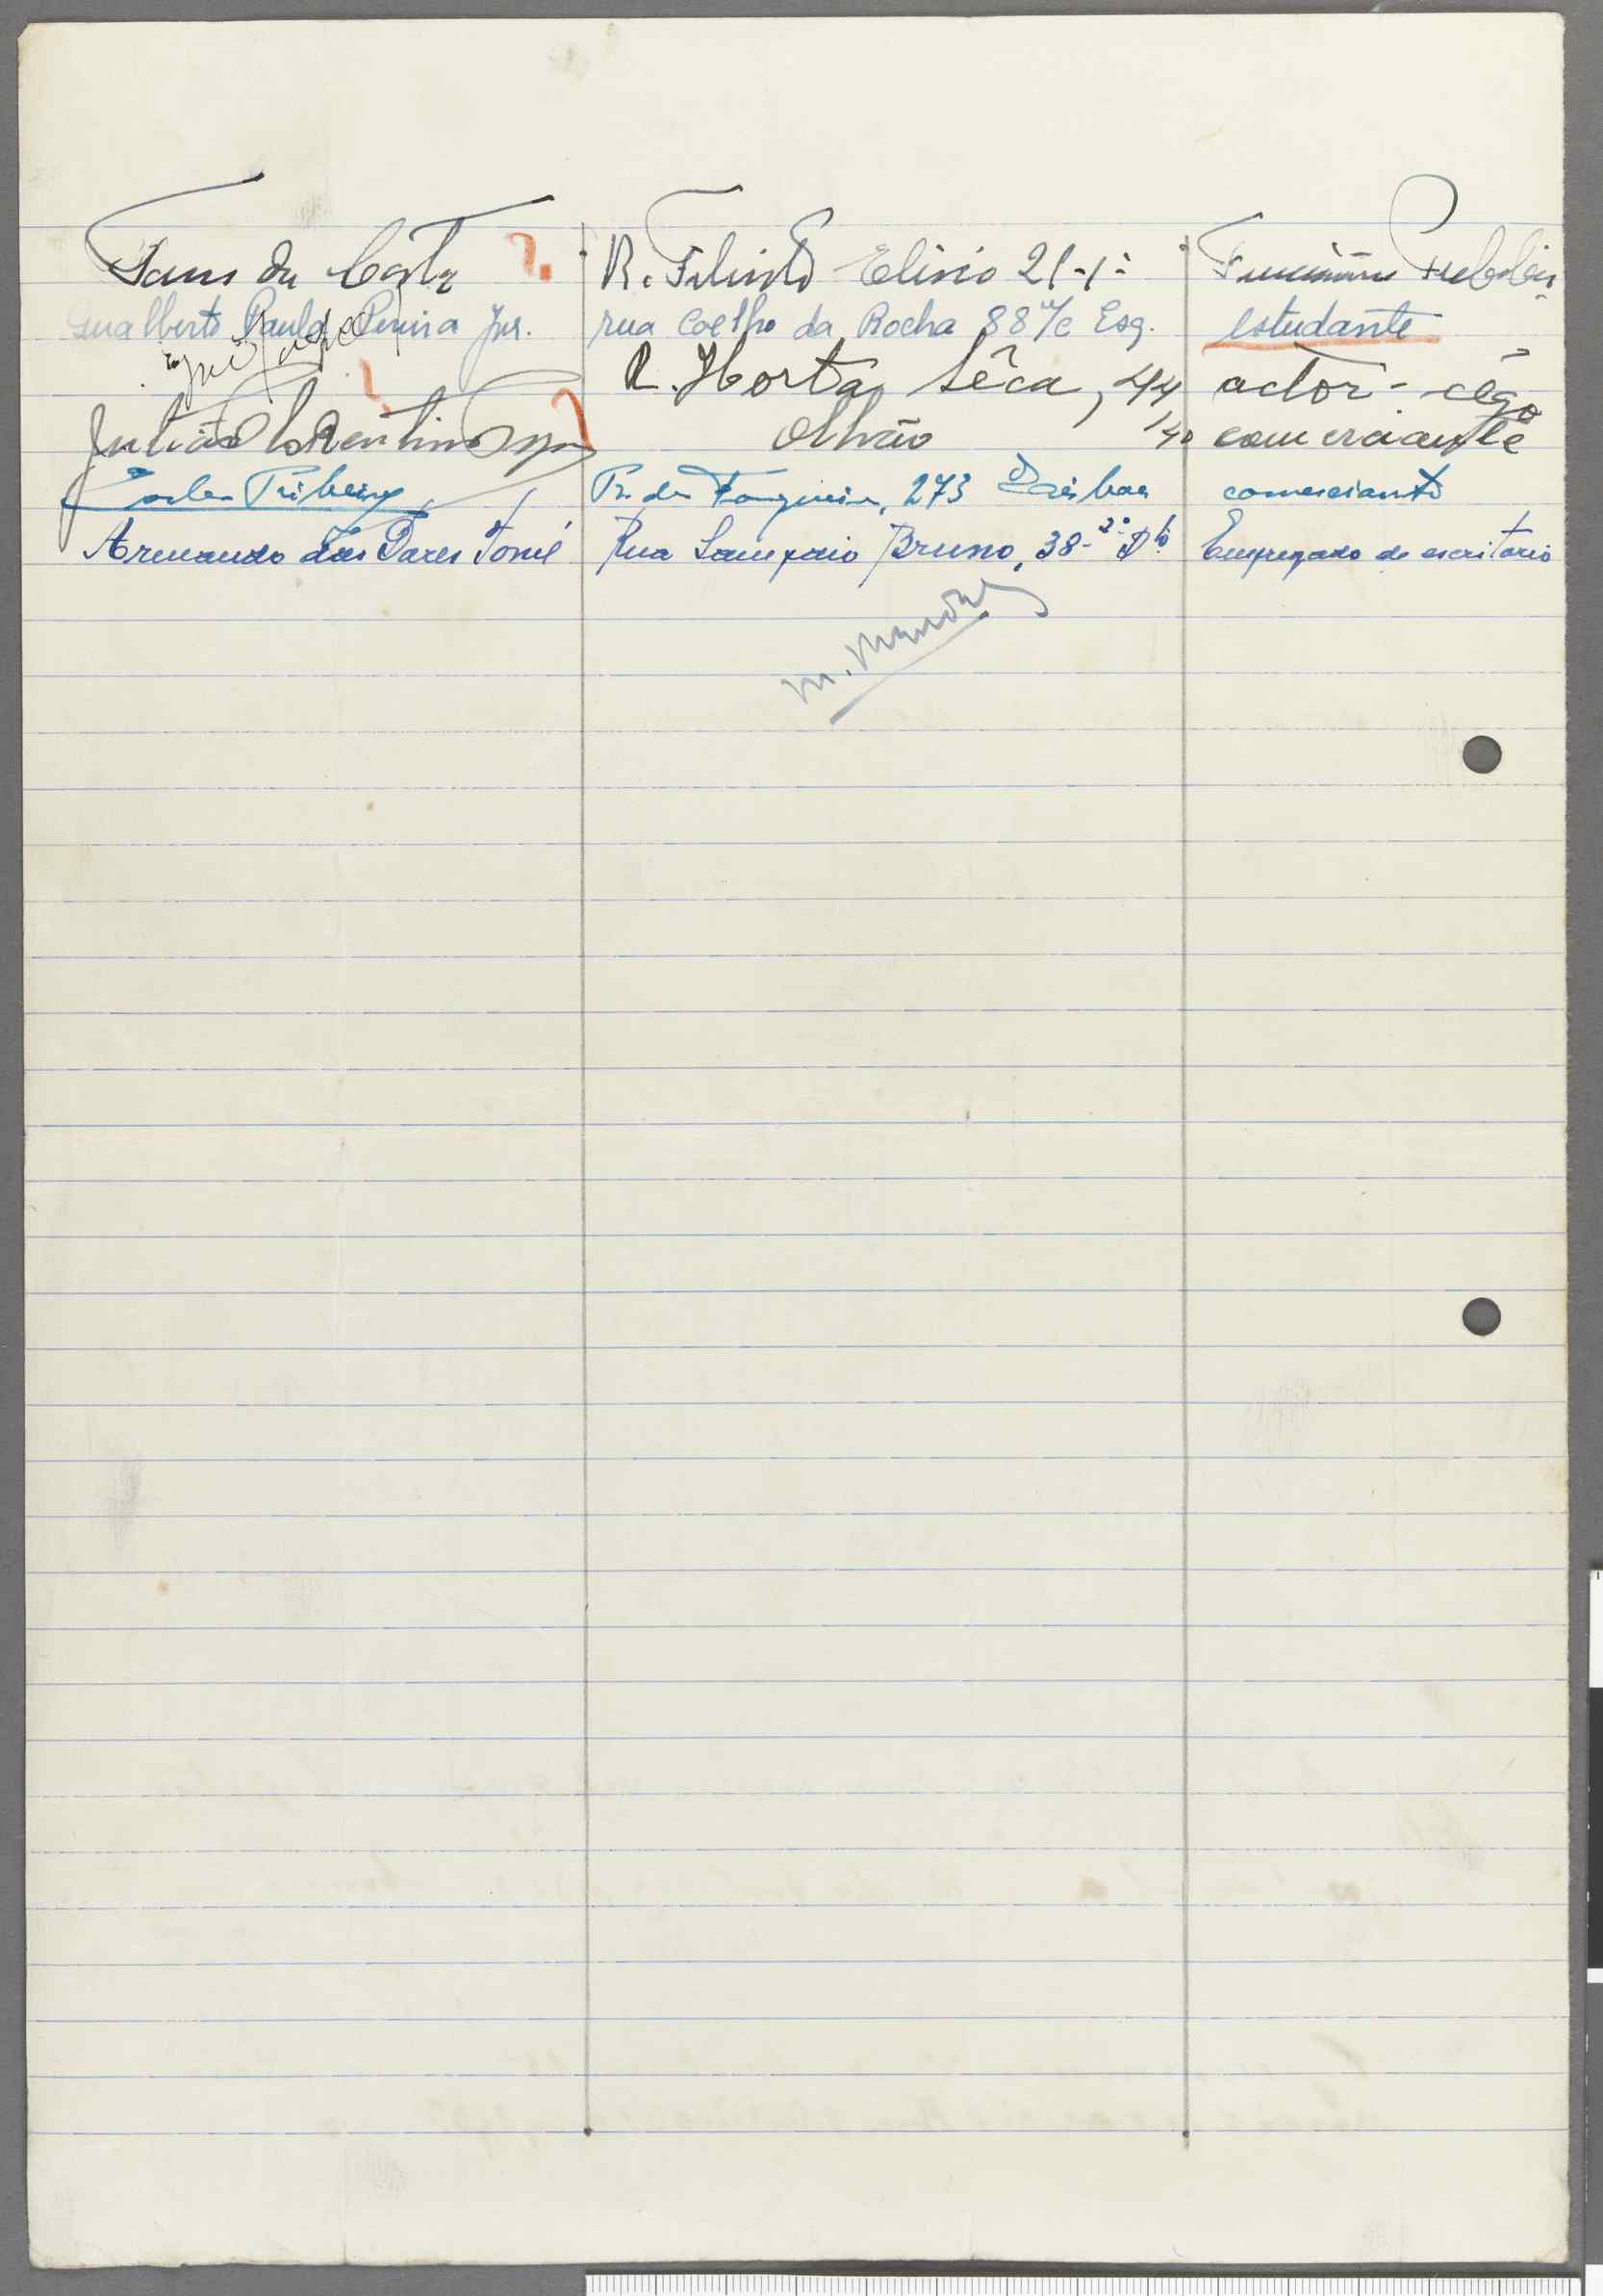 da Costa ? R. Filinto Elisio 21-1º Funcionário Publico
Gualberto Paulo Pereira Jnr. rua Coelho da Rocha 88 r/c Esq. estudante
R. Horta Sêca, 44 actor - cego
Julião Olhão comerciante
Carlos Ribeiro R. da 273 Lisboa comerciante
Armando dos Tomé Rua Sampaio Bruno, 38-2º Dto Empregado de escritorio
M.